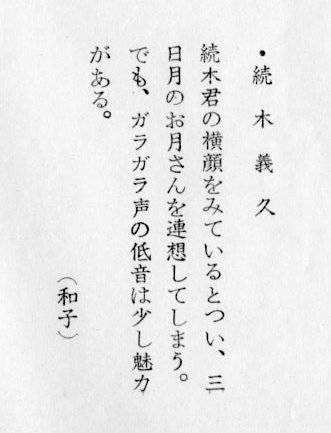 ・続木義久
続木君の横顔をみているとつい、三
日月のお月さんを連想してしまう。
でも、ガラガラ声の低音は少し魅力
がある。
（和子）